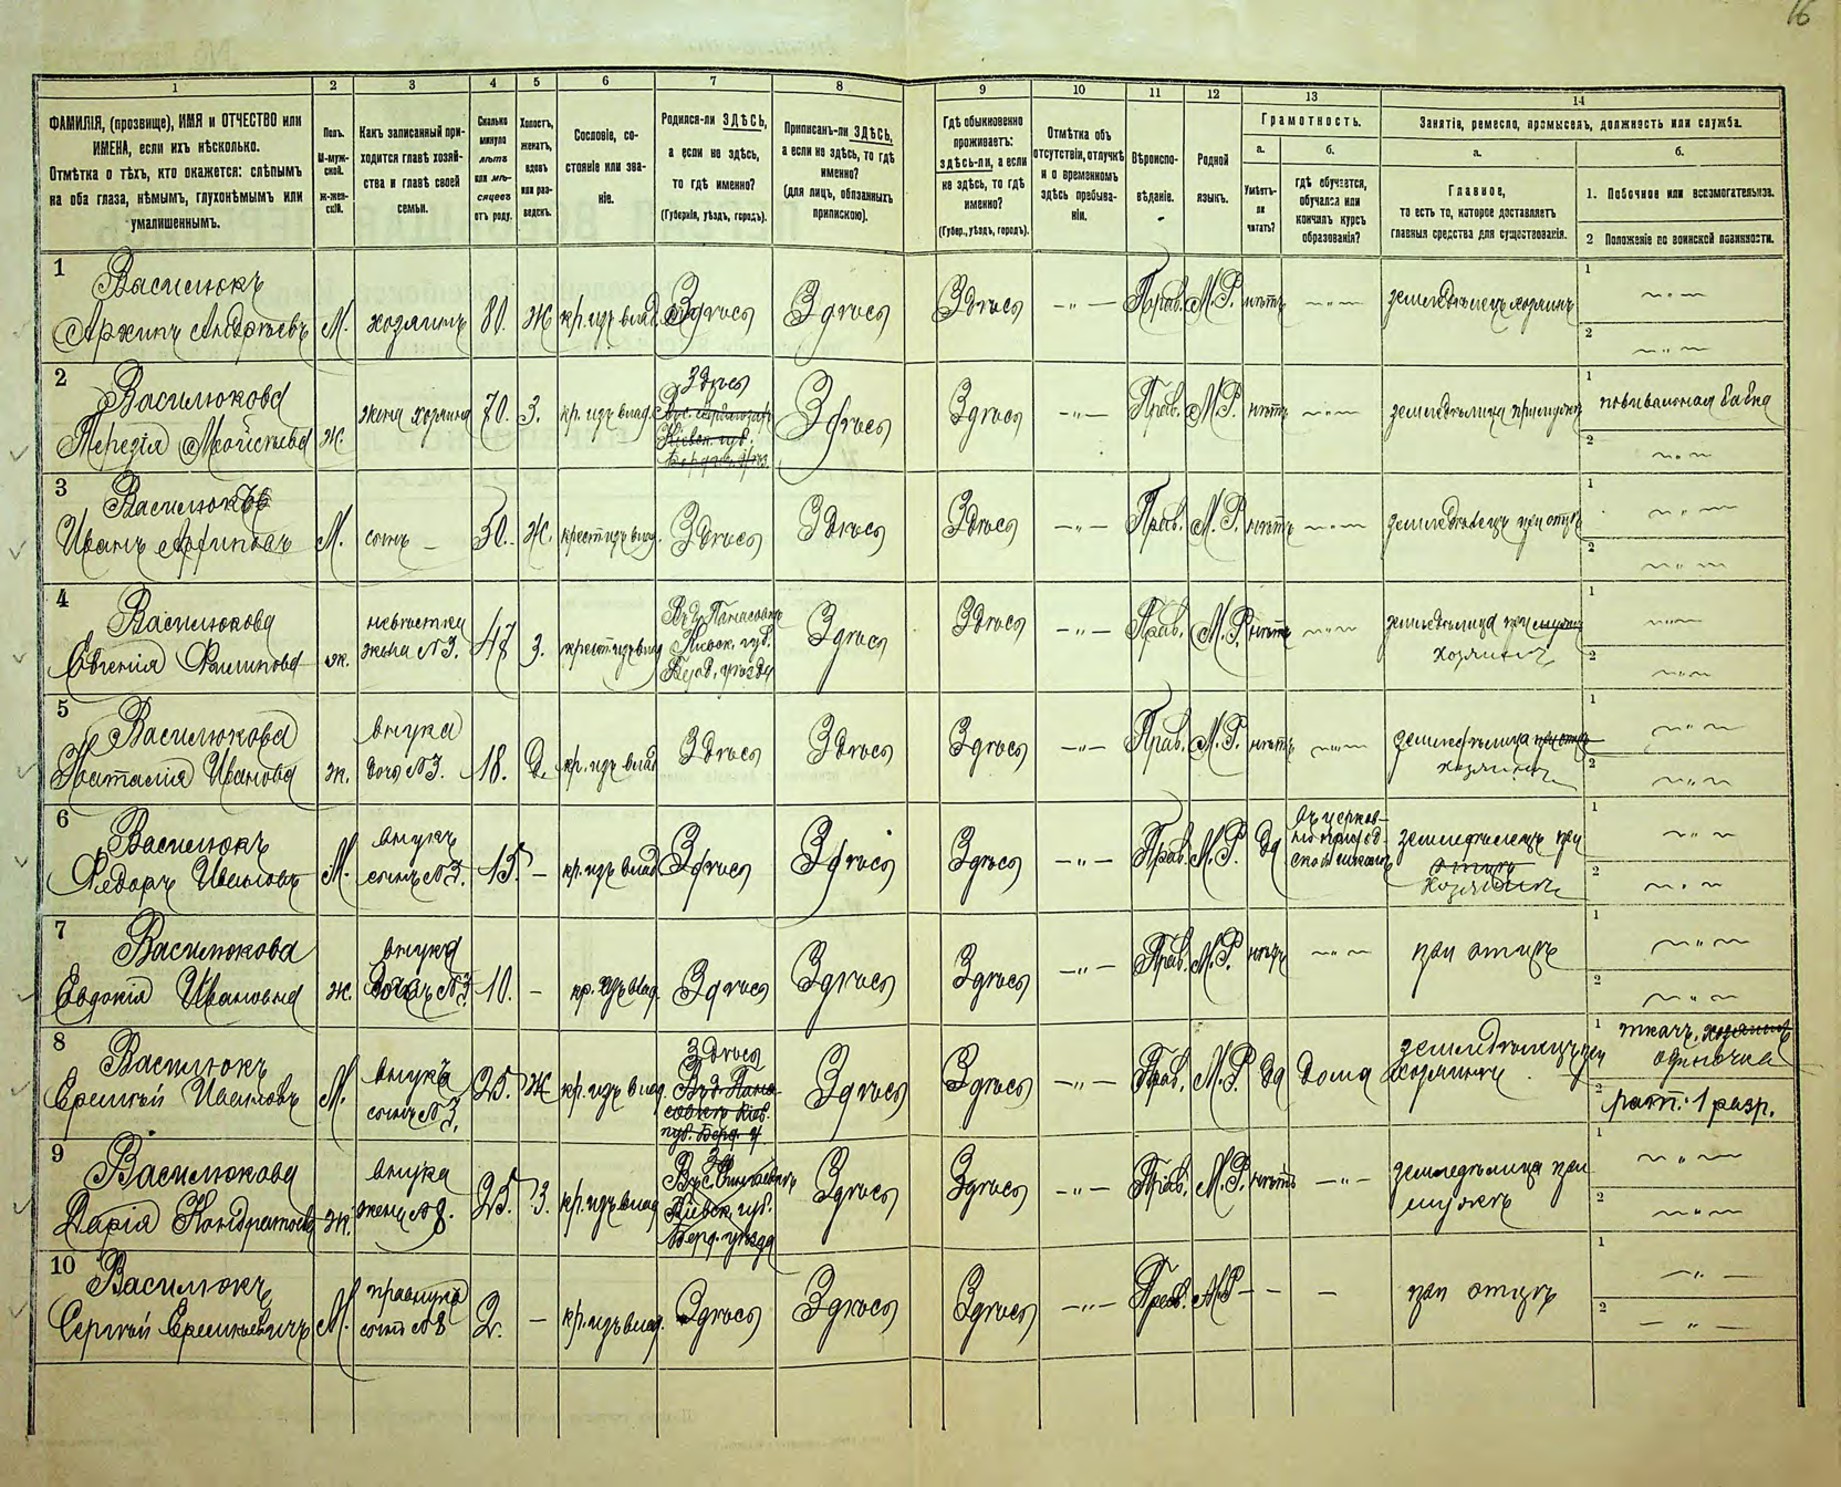 16
1
2
3
4
5
6
7
8
9
10
11
12
13
14
ФАМИЛІЯ, (прозвище), ИМЯ и ОТЧЕСТВО или
ИМЕНА, если ихъ нѣсколько.
Отмѣтка о тѣхъ, кто окажется: слѣпымъ
на оба глаза, нѣмымъ, глухонѣмымъ или
умалишеннымъ.
Полъ.
М-муж-
ской.
ж-жен-
скій.
Какъ записанный при-
ходится главѣ хозяй-
ства и главѣ своей
семьи.
Сколько
минуло
лѣтъ
или мѣ-
сяцевъ
отъ роду.
Холостъ,
женатъ,
вдовъ
или раз-
веденъ.
Сословіе, со-
стояніе или зва-
ніе.
Родился-ли ЗДѢСЬ,
а если не здѣсь,
то гдѣ именно?
(Губернія, уѣздъ, городъ).
Приписанъ-ли ЗДѢСЬ,
а если не здѣсь, то гдѣ
именно?
(для лицъ, обязанныхъ
припискою).
Гдѣ обыкновенно
проживаетъ:
здѣсь-ли, а если
не здѣсь, то гдѣ
именно?
(Губер., уѣздъ, городъ).
Отмѣтка объ
отсутствіи, отлучкѣ
и о временномъ
здѣсь пребыва-
ніи.
Вѣроиспо-
вѣданіе.
Родной
языкъ.
Грамотность.
а.
Умѣетъ-
ли
читать?
б.
гдѣ обучается,
обучался или
кончилъ курсъ
образованія?
Занятіе, ремесло, промыселъ, должность или служба.
а.
Главное,
то есть то, которое доставляетъ
главныя средства для существованія.
б.
1. Побочное или вспомогательное.
2 Положеніе по воинской повинности.
1
Василюкъ
Архипъ Андреевъ
М.
хозяинъ
80.
Ж
кр. изъ влад.
Здѣсь
Здѣсь
Здѣсь
— " —
Прав.
М.Р.
нѣтъ
— " —
земледѣлецъ хозяинъ
1
— " —
2
— " —
2
Василюкова
Терезія Мойсѣева
ж.
жена хозяина
70.
З.
кр. изъ влад.
Здѣсь
Кіевск. губ.
Здѣсь
Здѣсь
— " —
Прав.
М.Р.
нѣтъ
— " —
земледѣлица при мужѣ
1
повивальная бабка
2
— " —
3
Василюкъ
Иванъ Архиповъ
М.
сынъ —
50.
Ж.
крест. изъ влад.
Здѣсь
Здѣсь
Здѣсь
— " —
Прав.
М.Р.
нѣтъ
— " —
земледѣлецъ при отцѣ
1
— " —
2
— " —
4
Василюкова
Евгенія Филипова
ж.
невѣстка
жена №3.
47
З.
крест. изъ влад
Въ д. Панасовкѣ
Кіевск. губ.
Берд. уѣзда
Здѣсь
Здѣсь
— " —
Прав.
М.Р.
нѣтъ
— " —
земледѣлица при мужѣ
хозяинѣ
1
— " —
2
— " —
5
Василюкова
Наталія Иванова
ж.
внука
дочь №3.
18.
Д.
кр. изъ влад
Здѣсь
Здѣсь
Здѣсь
— " —
Прав.
М.Р.
нѣтъ
— " —
земледѣлица при отцѣ
хозяинѣ
1
— " —
2
— " —
6
Василюкъ
Федоръ Ивановъ
М.
внукъ
сынъ №3.
15.
—
кр. изъ влад
Здѣсь
Здѣсь
Здѣсь
— " —
Прав.
М.Р.
да
въ церков-
но приход-
ской школѣ
земледѣлецъ при
отцѣ
хозяинѣ
1
— " —
2
— " —
7
Василюкова
Евдокія Ивановна
ж.
внука
дочь №3
10.
—
кр. изъ влад.
Здѣсь
Здѣсь
Здѣсь
— " —
Прав.
М.Р.
нѣтъ
— " —
при отцѣ
1
— " —
2
— " —
8
Василюкъ
Еремѣй Ивановъ
М.
внукъ
сынъ №3.
25.
Ж
кр. изъ влад.
Здѣсь
Въ д. Пана-
совкѣ Кіев.
губ. Берд. у.
Здѣсь
Здѣсь
— " —
Прав.
М.Р.
да
дома
земледѣлецъ при
хозяинѣ
1
ткачъ, хозяинъ
одиночка
2
рат. 1 разр.
9
Василюкова
Дарія Кондратова
ж.
внука
жена №8.
25.
З.
кр. изъ влад
Кіевск. губ.
Берд. уѣзда
Здѣсь
Здѣсь
— " —
Прав.
М.Р.
нѣтъ
— " —
земледѣлица при
мужѣ
1
— " —
2
— " —
10
Василюкъ
Сергѣй Еремѣевичъ
М.
правнукъ
сынъ №8
2.
—
кр. изъ влад.
Здѣсь
Здѣсь
Здѣсь
— " —
Прав.
М.Р
—
—
при отцѣ
1
— " —
2
— " —